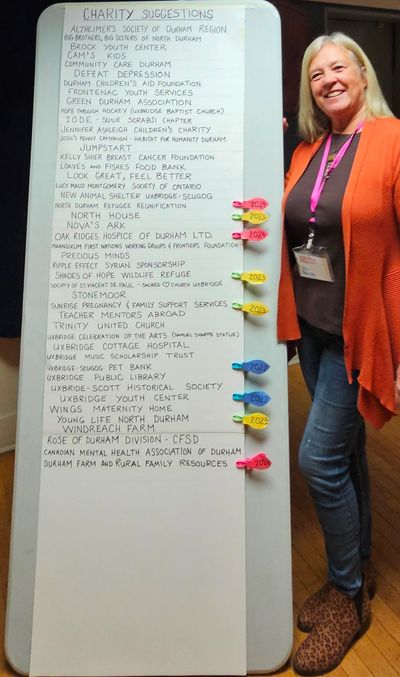 CHARITY SUGGESTIONS
ALZHEIMER'S SOCIETY OF DURHAM REGION
BIG BROTHERS, BIG SISTERS OF NORTH DURHAM
BROCK YOUTH CENTER
CAM'S KIDS
COMMUNITY CARE DURHAM
DEFEAT DEPRESSION
DURHAM CHILDREN'S AID FOUNDATION
FRONTENAC YOUTH SERVICES
GREEN DURHAM ASSOCIATION
HOPE THROUGH HOCKEY (UXBRIDGE BAPTIST CHURCH)
IODE - SUSIE SORABJI CHAPTER
JENNIFER ASHLEIGH CHILDREN'S CHARITY
JOSH'S PENNY CAMPAIGN - HABITAT FOR HUMANITY DURHAM
JUMPSTART
KELLY SHIER BREAST CANCER FOUNDATION
LOAVES AND FISHES FOOD BANK
LOOK GREAT, FEEL BETTER
LUCY MAUD MONTGOMERY SOCIETY OF ONTARIO
NEW ANIMAL SHELTER UXBRIDGE-SCUGOG
NORTH DURHAM REFUGEE REUNIFICATION 2024
NORTH HOUSE 2023
NOVA'S ARK
OAK RIDGES HOSPICE OF DURHAM LTD. 2024
PIKANGIKUM FIRST NATIONS WORKING GROUPS & FRONTIERS FOUNDATION
PRECIOUS MINDS
RIPPLE EFFECT SYRIAN SPONSORSHIP
SHADES OF HOPE WILDLIFE REFUGE 2023
SOCIETY OF ST. VINCENT DE PAUL - SACRED ♡ CHURCH UXBRIDGE
STONEMOOR
SUNRISE PREGNANCY & FAMILY SUPPORT SERVICES 2023
TEACHER MENTORS ABROAD
TRINITY UNITED CHURCH
UXBRIDGE CELEBRATION OF THE ARTS (SAMUEL SHARPE STATUE)
UXBRIDGE COTTAGE HOSPITAL
UXBRIDGE MUSIC SCHOLARSHIP TRUST
UXBRIDGE-SCUGOG PET BANK
UXBRIDGE PUBLIC LIBRARY
UXBRIDE-SCOTT HISTORICAL SOCIETY
UXBRIDGE YOUTH CENTER
WINGS MATERNITY HOME
YOUNG LIFE NORTH DURHAM 2023
WINDREACH FARM
ROSE OF DURHAM DIVISION - CFSD
CANADIAN MENTAL HEALTH ASSOCIATION OF DURHAM
DURHAM FARM AND RURAL FAMILY RESOURCES